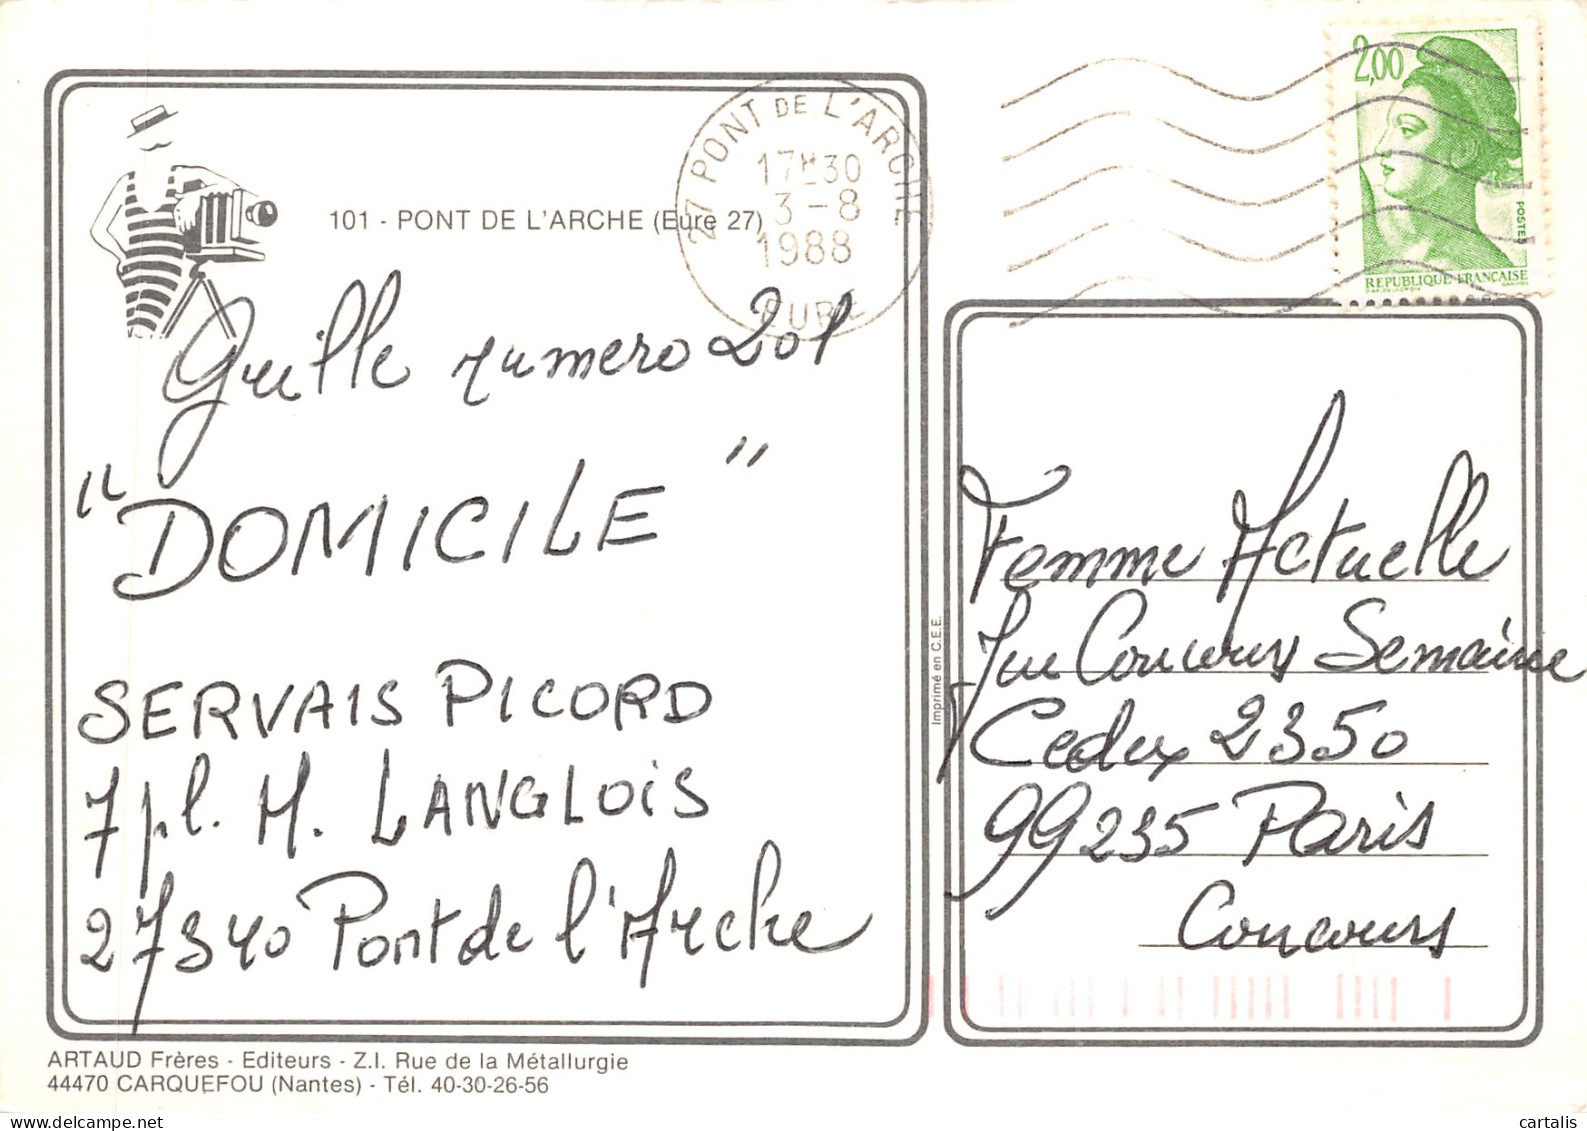 101 - PONT DE L'ARCHE (Eure 27)
27 PONT DE L'ARCHE
17H30
3-8
1988
EURE
2,00
POSTES
REPUBLIQUE FRANÇAISE
Grille numero 201
"DOMICILE"
SERVAIS PICORD
7 pl. M. LANGLOIS
27340 Pont de l'Arche
Imprimé en C.E.E.
Femme Actuelle
Jeu Concours Semaine
Cedex 2350
99235 Paris
Concours
ARTAUD Frères - Editeurs - Z.I. Rue de la Métallurgie
44470 CARQUEFOU (Nantes) - Tél. 40-30-26-56
cartalis